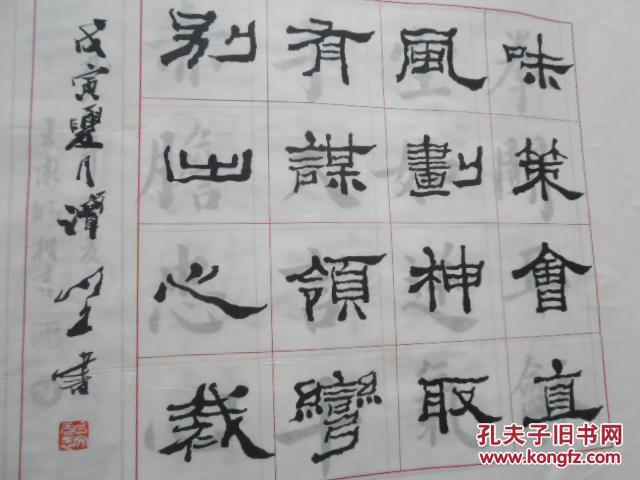 别有風味
出謀劃策
心領神會
裁彎取直
戊寅夏月譚書
孔夫子旧书网
www.kongfz.com